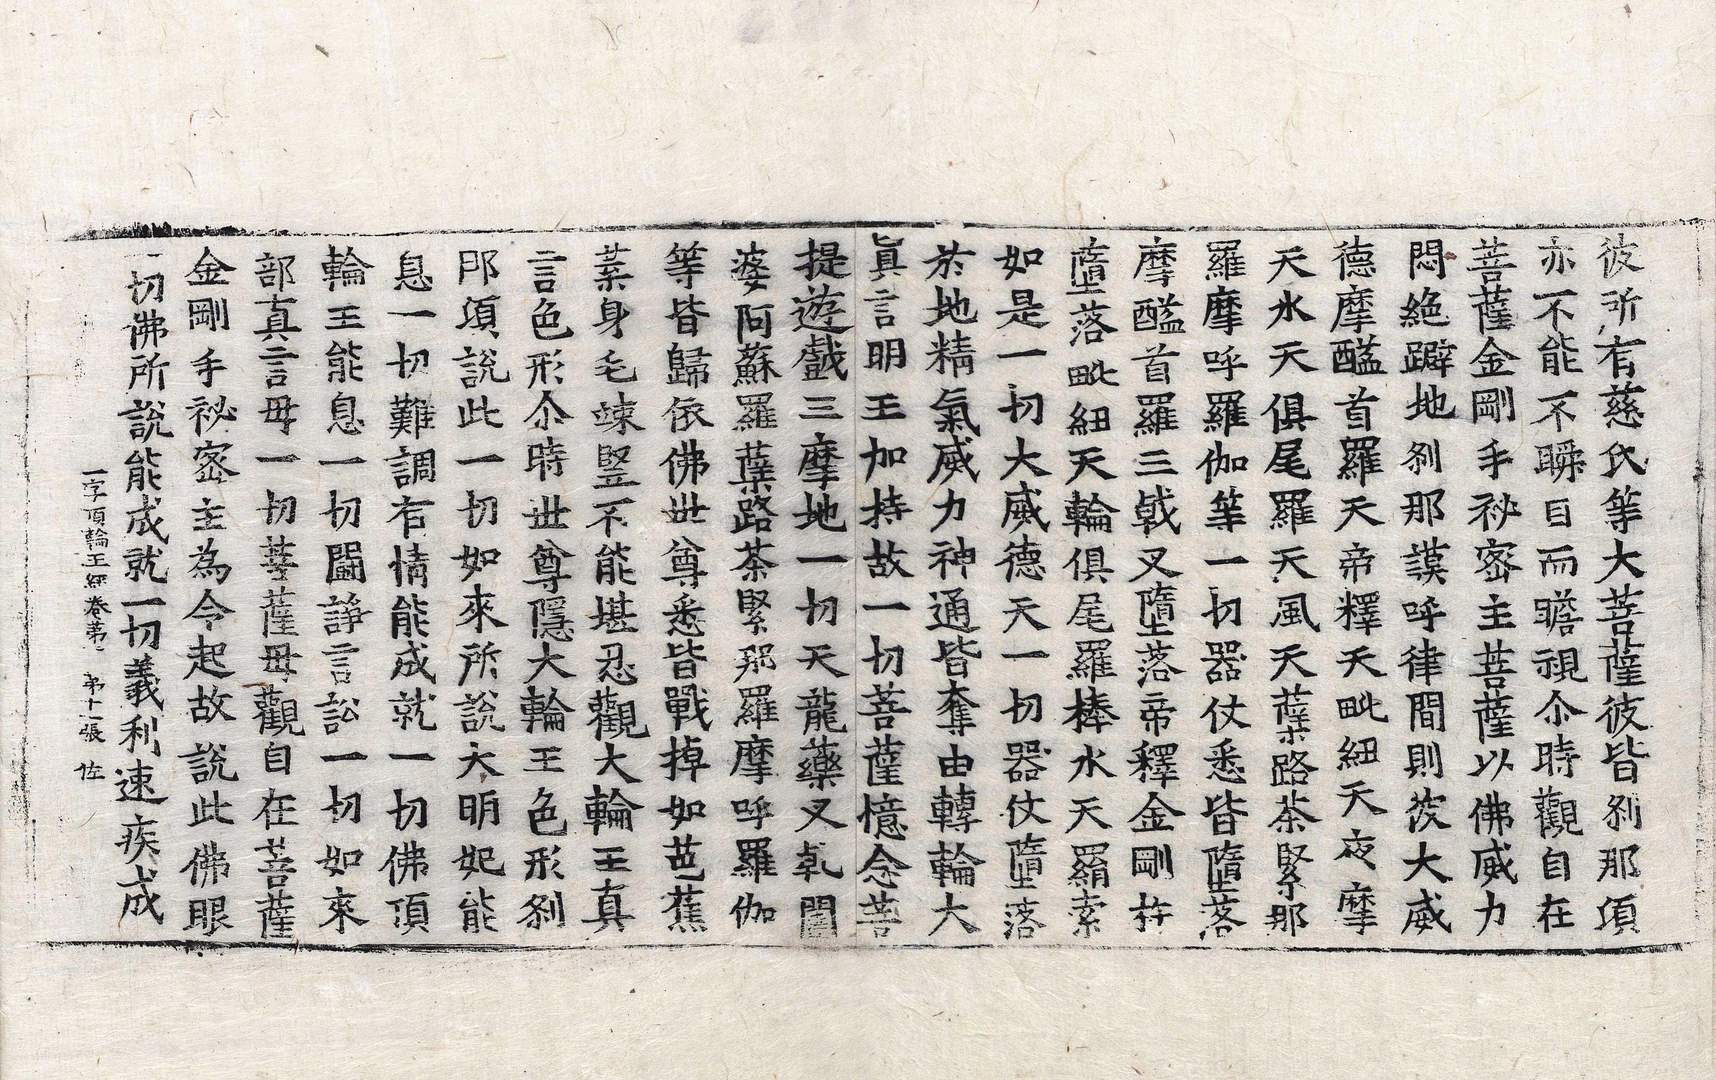 彼所有慈氏等大菩薩彼皆刹那項
亦不能不瞬目而瞻視尒時觀自在
菩薩金剛手祕密主菩薩以佛威力
悶絶躃地刹那謨呼律間則彼大威
德摩醯首羅天帝釋天毗紐天夜摩
天水天俱尾羅天風天蘖路荼緊那
羅摩呼羅伽等一切器仗悉皆墮落
摩醯首羅三戟叉墮落帝釋金剛杵
墮落毗紐天輪俱尾羅棒水天羂索
如是一切大威德天一切器仗墮落
於地精氣威力神通皆奪由轉輪大
眞言明王加持故一切菩薩憶念菩
提遊戲三摩地一切天龍藥叉乹闥
婆阿蘇羅蘖路荼緊那羅摩呼羅伽
等皆歸依佛世尊悉皆戰掉如芭蕉
葉身毛竦竪不能堪忍觀大輪王真
言色形尒時世尊隱大輪王色形刹
那項說此一切如來所說大明妃能
息一切難調有情能成就一切佛頂
輪王能息一切鬪諍言訟一切如來
部真言母一切菩薩母觀自在菩薩
金剛手祕密主為令起故說此佛眼
一切佛所說能成就一切義利速疾成
一字頂輪王經卷第一 第十張 佐